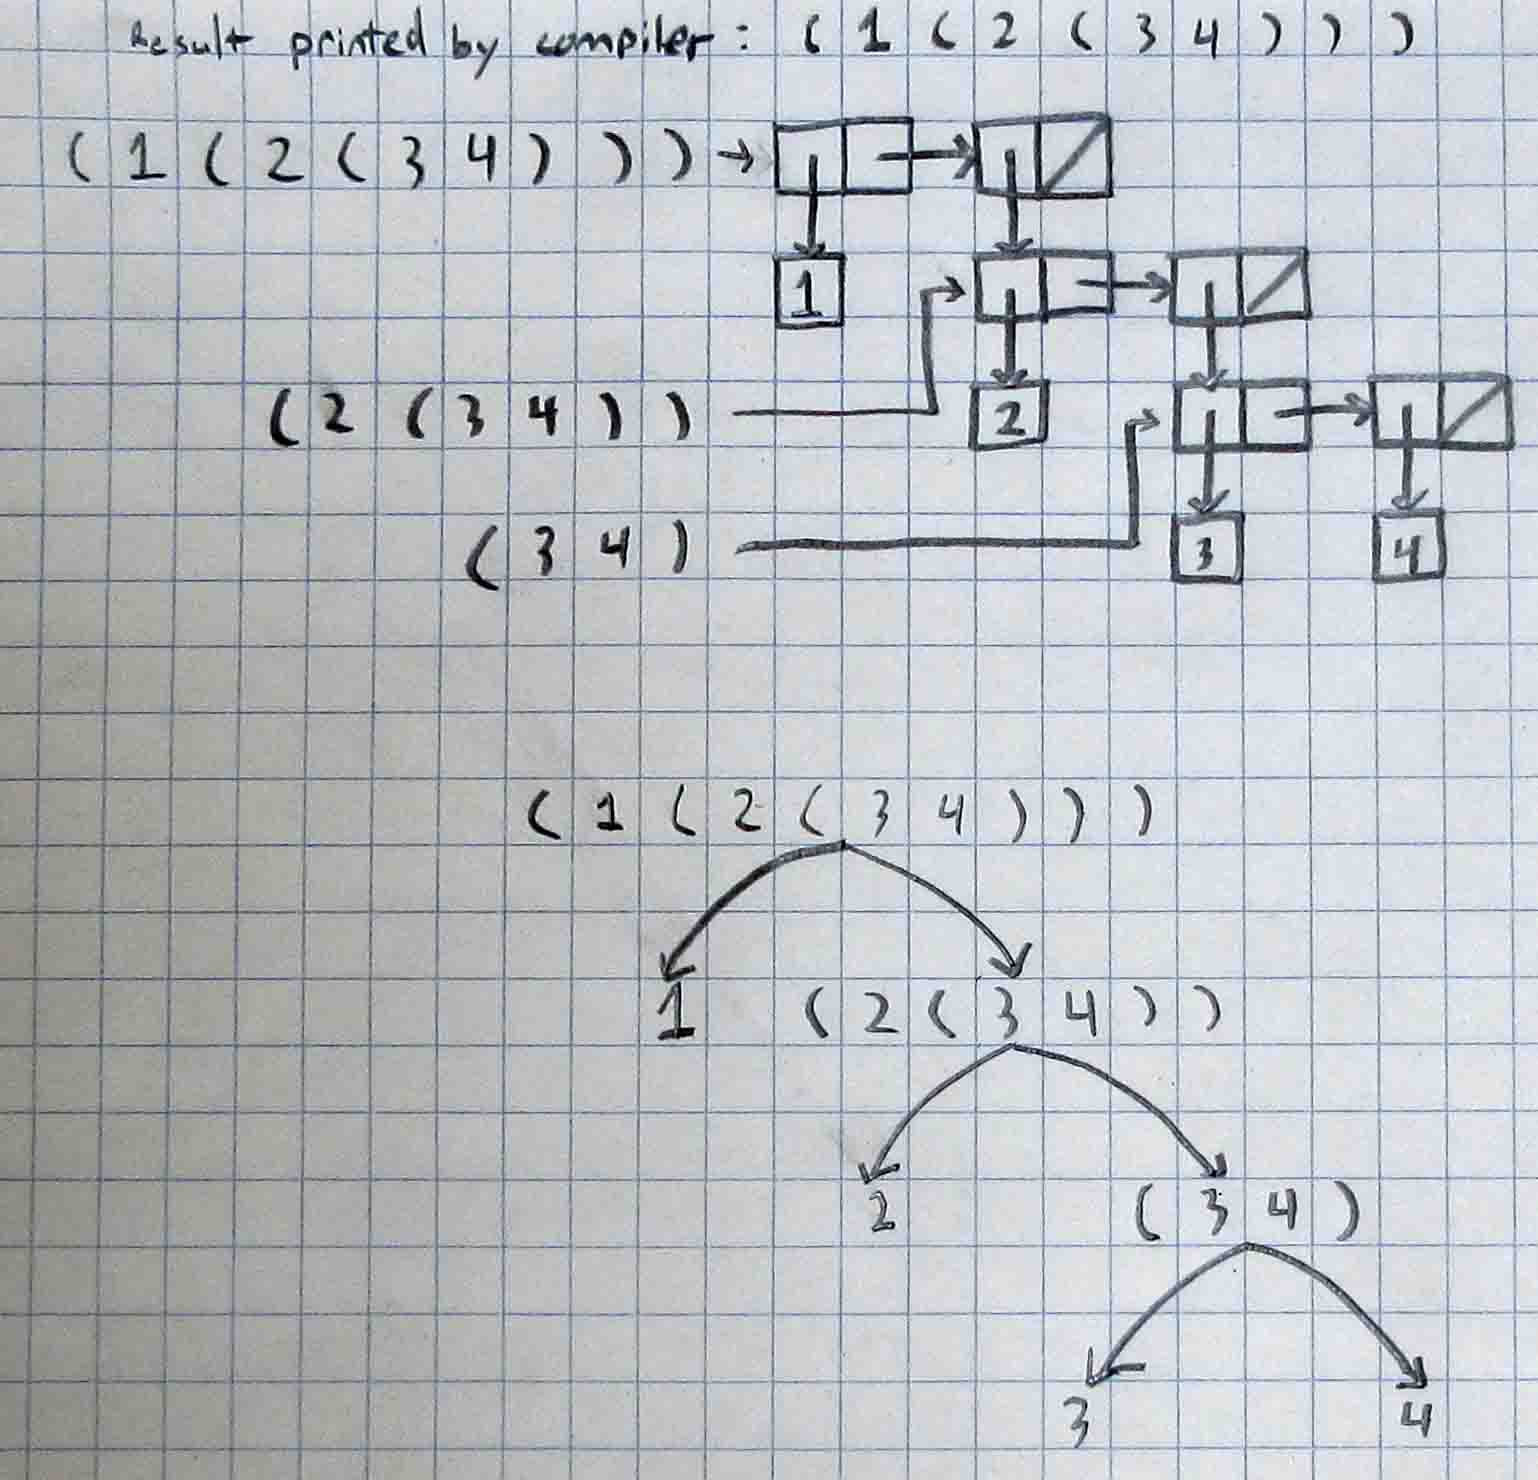 Result printed by compiler: (1(2(34)))
(1(2(34)))
1
(2(34))
2
(34)
3 4
(1(2(34)))
1 (2(34))
2 (34)
3 4